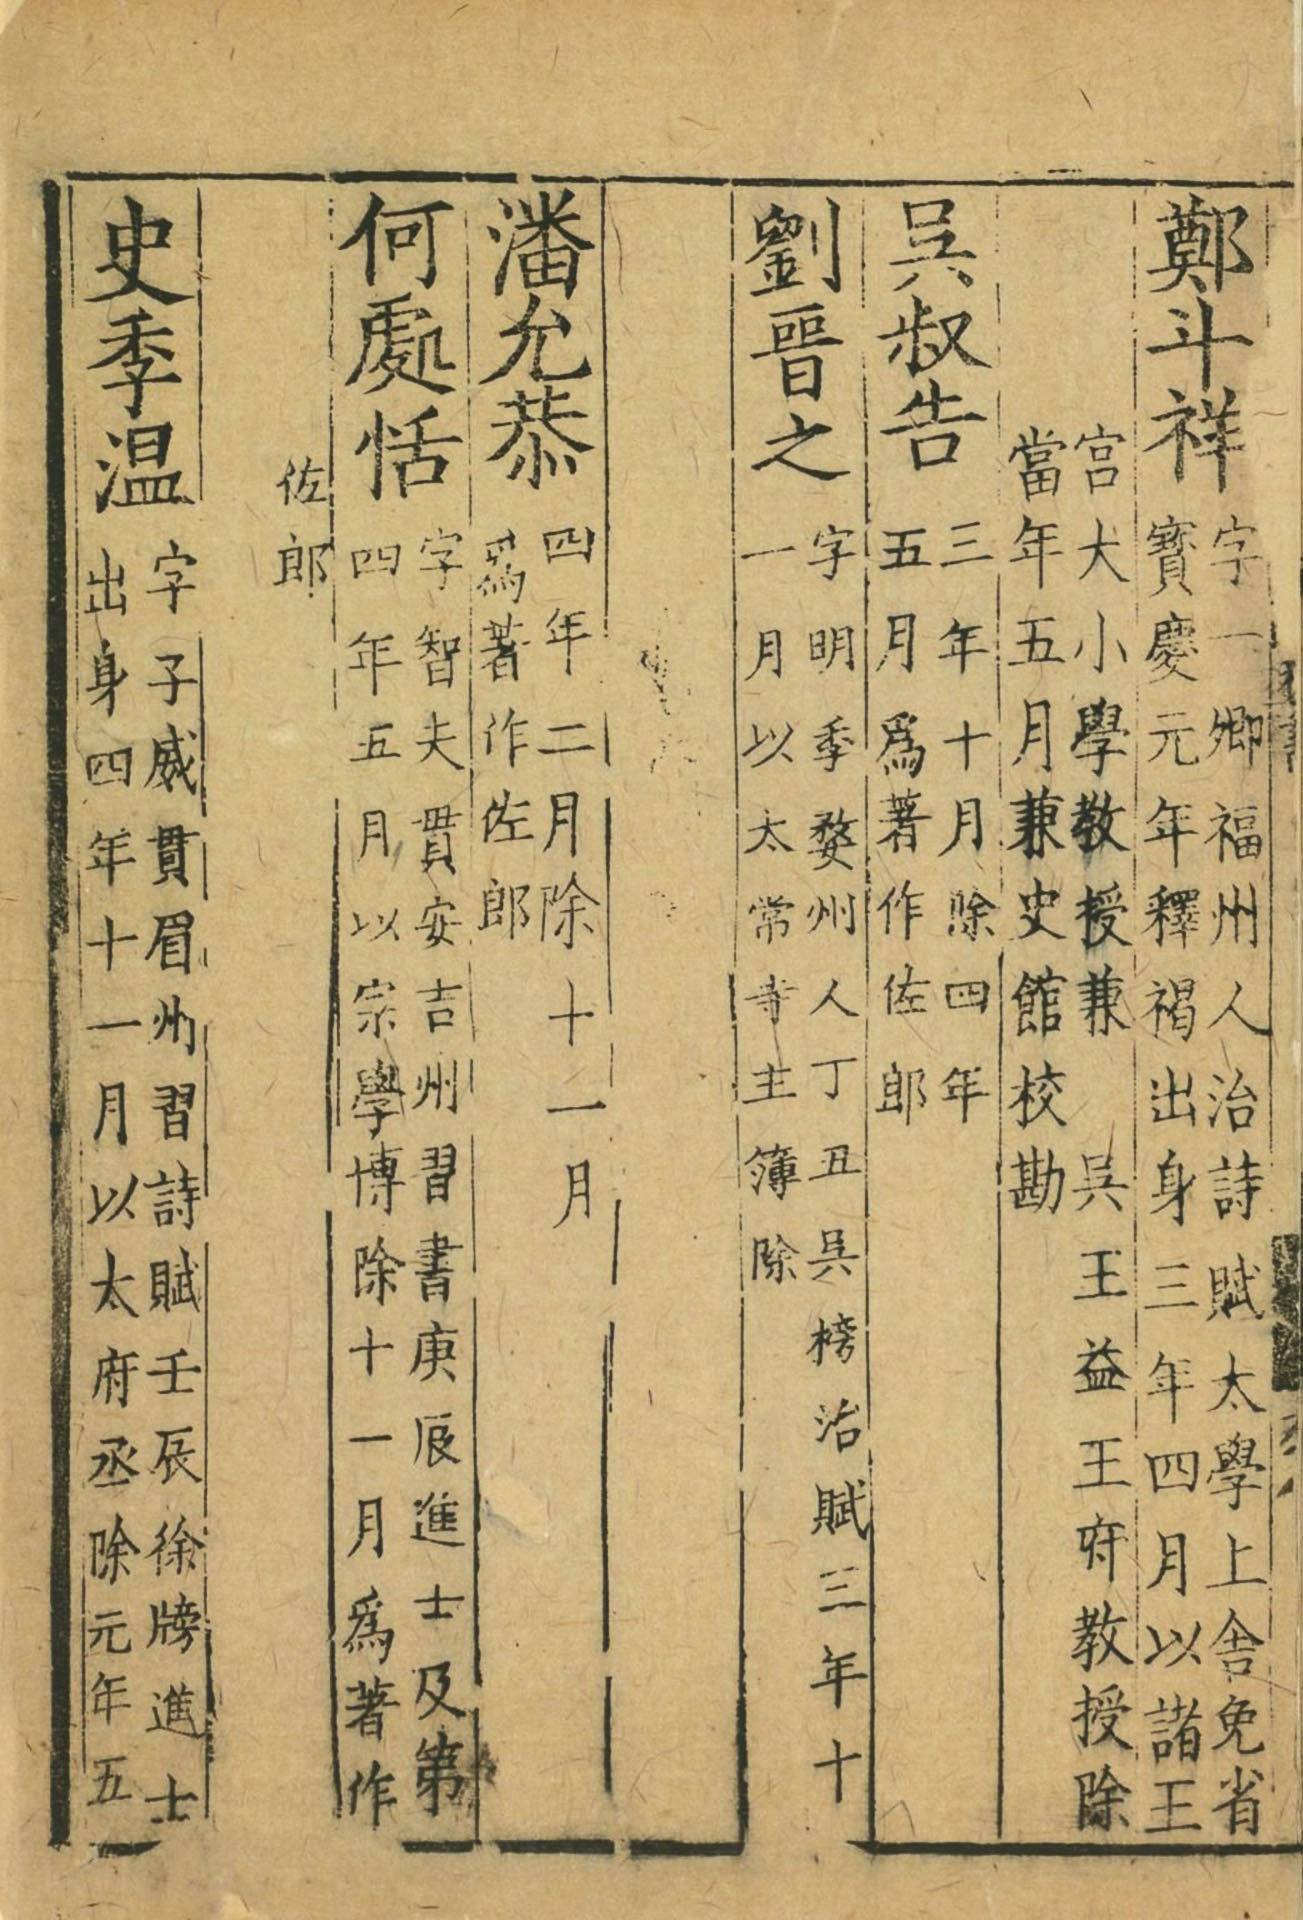 鄭斗祥
字一卿福州人治詩賦太學上舎免省
寳慶元年釋褐出身三年四月以諸王
宫大小學教授兼 吳王益王府教授除
當年五月兼史館校勘
吳叔告
三年十月除四年
五月爲著作佐郎
劉晉之
字明季婺州人丁丑吳榜治賦三年十
一月以太常寺主簿除
潘允恭
四年二月除十一月
爲著作佐郎
何處恬
字智夫貫安吉州習書庚辰進士及第
四年五月以宗學博除十一月爲著作
佐郎
史季温
字子威貫眉州習詩賦壬辰徐牓進士
出身四年十一月以太府丞除元年五